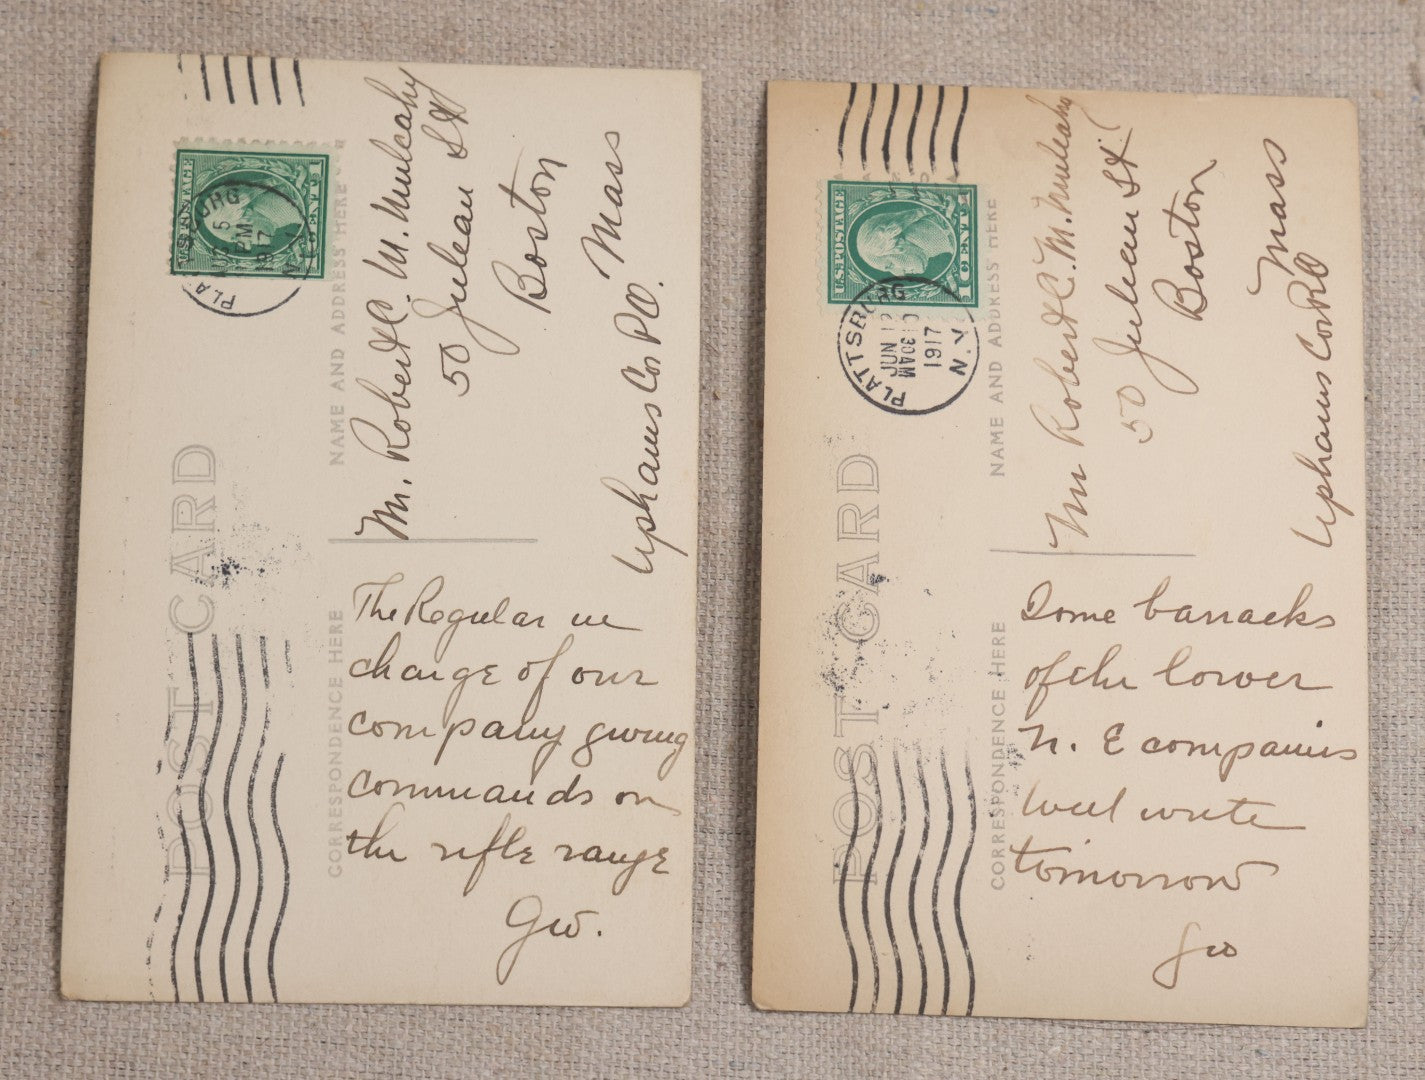 U.S. POSTAGE
1 CENT 1
PLATTSBURG
5
PM
1917
N.Y.
POST CARD
NAME AND ADDRESS HERE
Mr. Robert C. M. Mulcahy
50 Juleau St
Boston
Mass
Uphams Cor PO.
CORRESPONDENCE HERE
The Regular in
charge of our
company giving
commands on
the rifle range
Gw.
U.S. POSTAGE
1 CENT 1
PLATTSBURG
JUN 12
1 30 AM
1917
N.Y.
POST CARD
NAME AND ADDRESS HERE
Mr Robert C. M. Mulcahy
50 Juleau St
Boston
Mass
Uphams Cor PO
CORRESPONDENCE HERE
Some barracks
of the lower
N. E companies
Will write
tomorrow
Gw